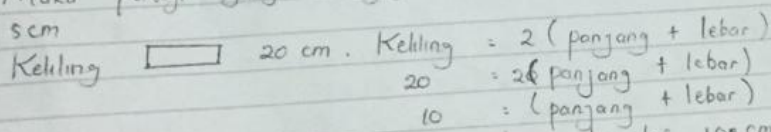 5 cm
Keliling 20 cm. Keliling = 2 (panjang + lebar)
20 = 2( panjang + lebar)
10 = (panjang + lebar)